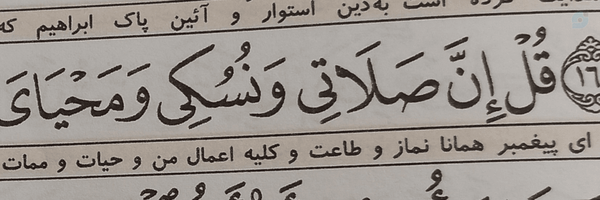 است به دین استوار و آئین پاک ابراهیم که
۱۶ قُلْ إِنَّ صَلَاتِي وَنُسُكِي وَمَحْيَايَ
ای پیغمبر همانا نماز و طاعت و کلیه اعمال من و حیات و ممات